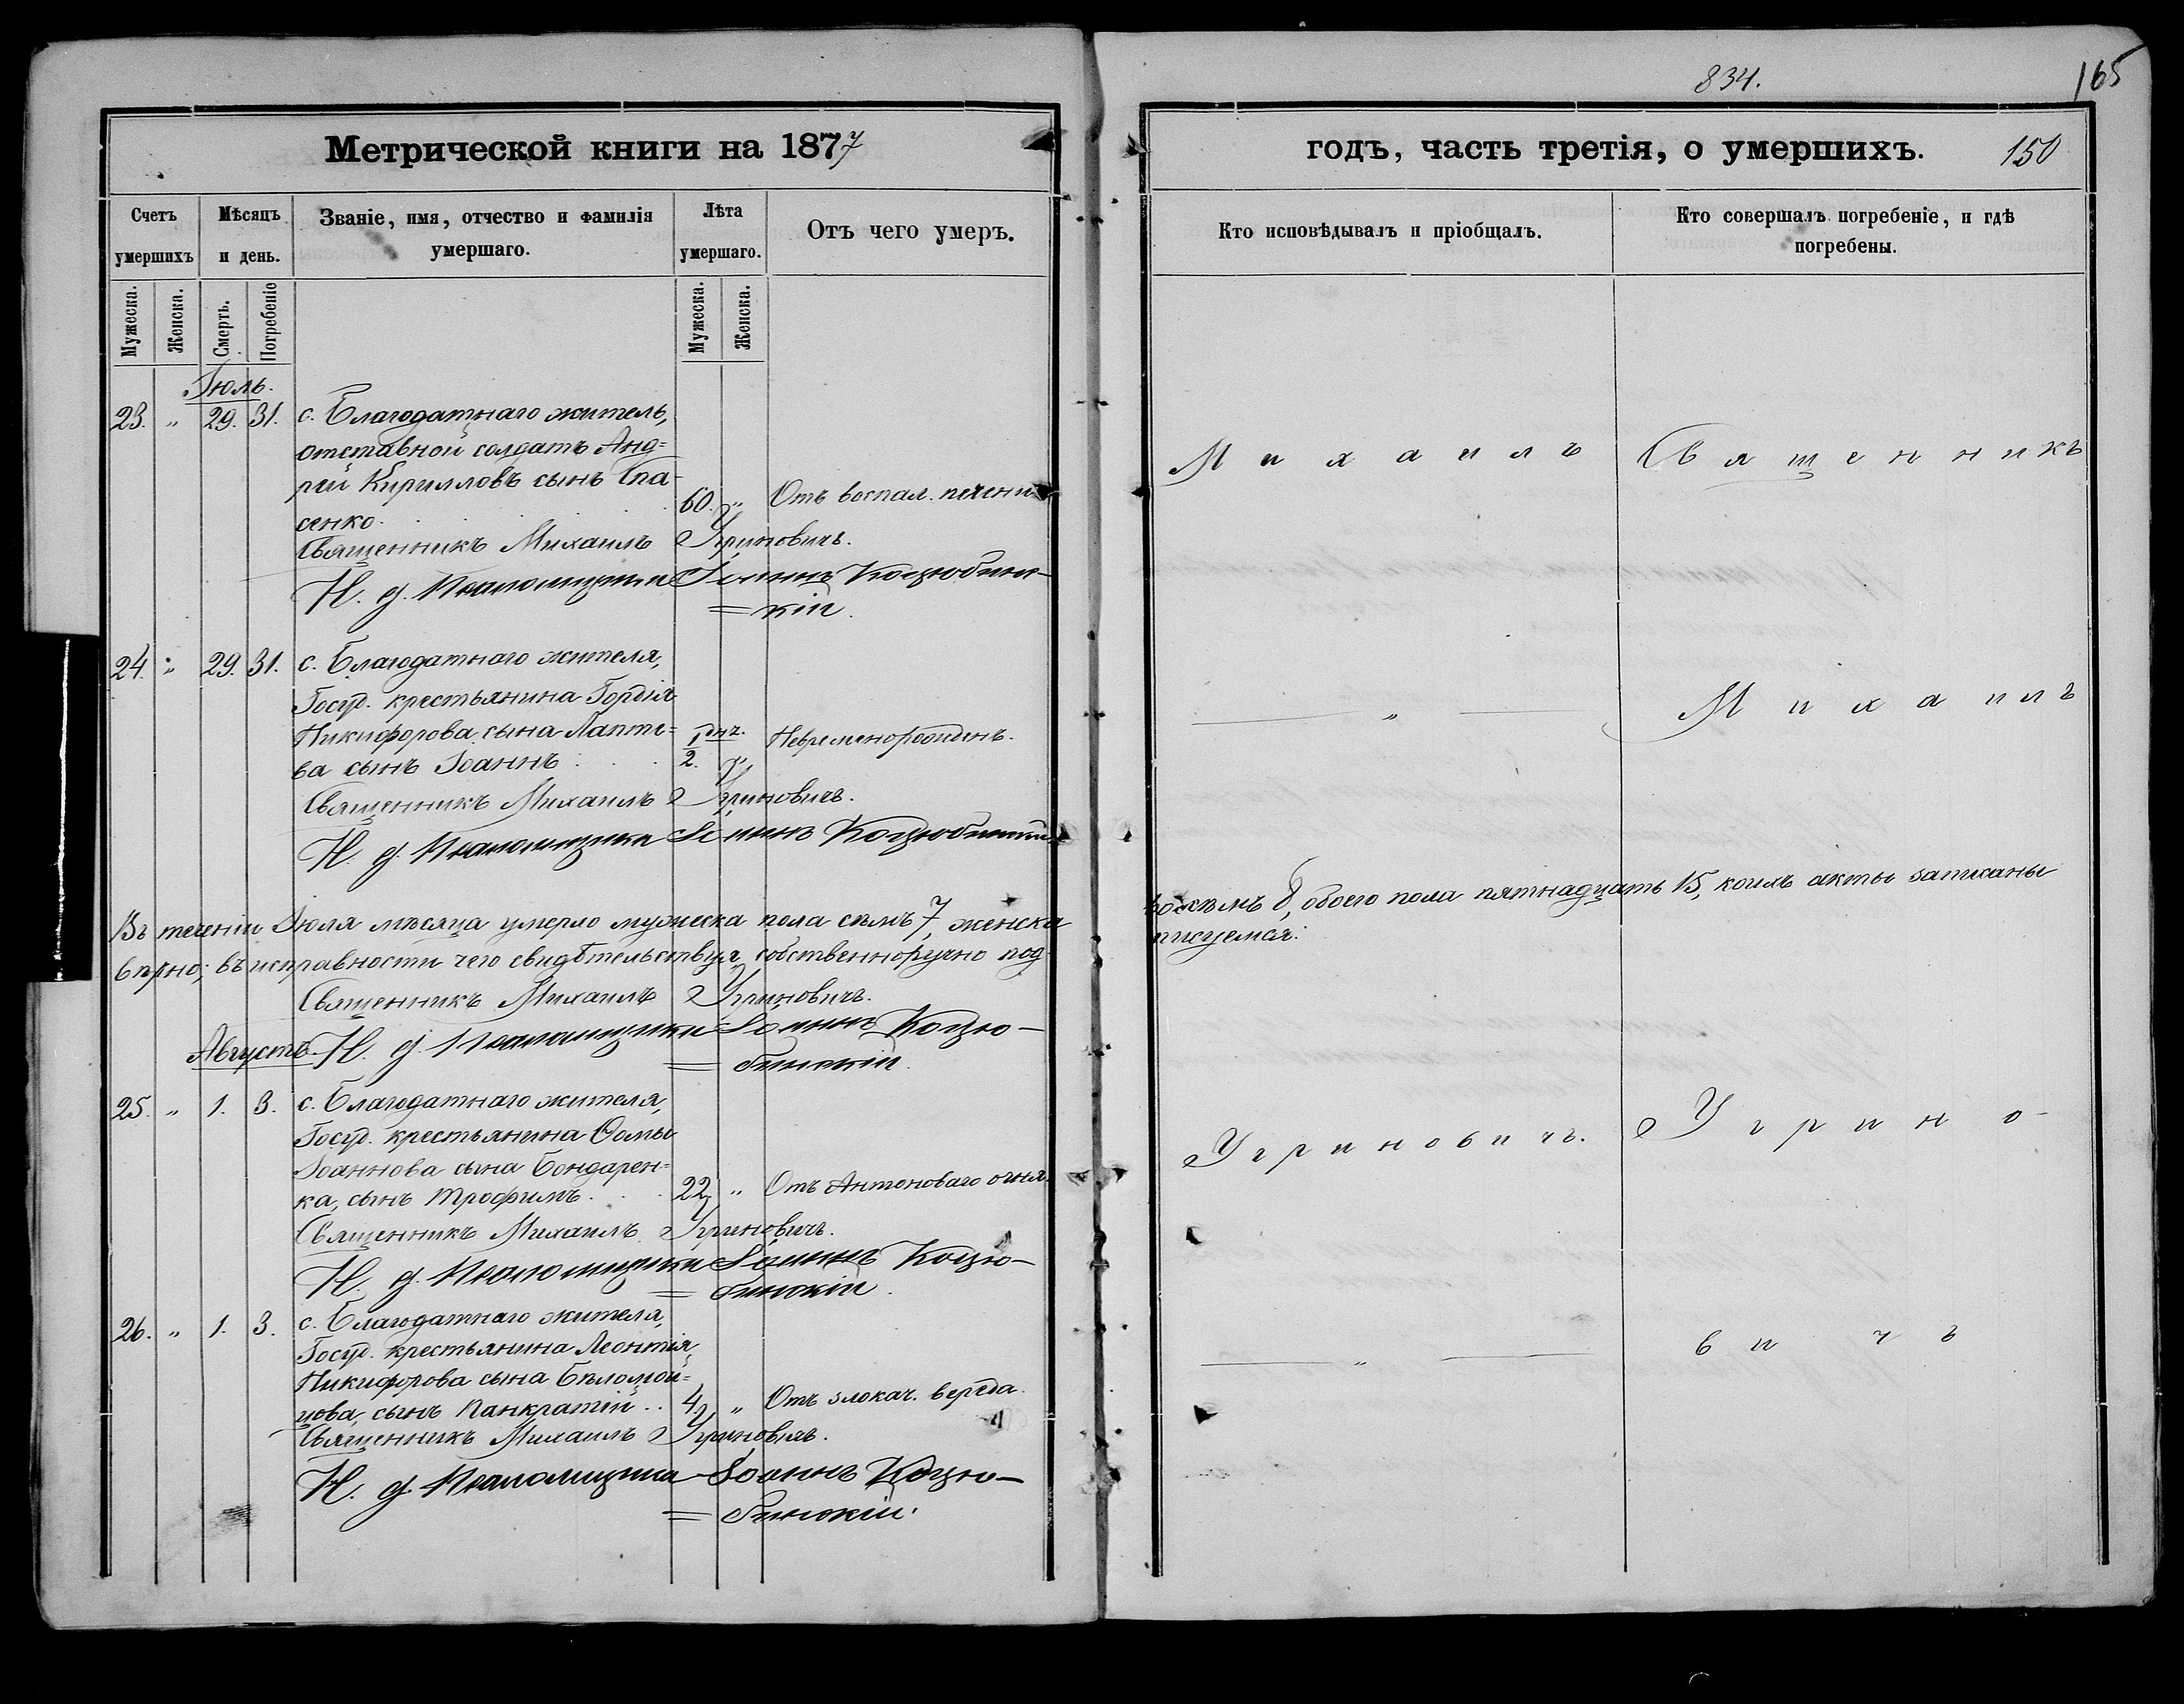 834.
165
Метрической книги на 1877
годъ, часть третія, о умершихъ.
150
Счетъ умершихъ
Мѣсяцъ и день.
Званіе, имя, отчество и фамилія умершаго.
Лѣта умершаго.
Отъ чего умеръ.
Кто исповѣдывалъ и пріобщалъ.
Кто совершалъ погребеніе, и гдѣ погребены.
Мужеска.
Женска.
Смерть.
Погребеніе
Мужеска.
Женска.
Іюль.
23. " 29. 31. с. Благодатнаго житель,
отставной солдатъ Анд=
рей Кирилловъ сынъ Спа-
сенко. 60. " Отъ воспал. печени
Священникъ Михаилъ Угриновичъ.
И. д. Псаломщика Іоаннъ Коцюбин-
=кій.
24. " 29. 31. с. Благодатнаго жителя,
Госуд. крестьянина Гордія
Никифорова сына Лапте=
ва сынъ Іоаннъ. 1/2 дня. " Невременорожденъ.
Священникъ Михаилъ Угриновичъ.
И. д. Псаломщика Іоаннъ Коцюбинскій
Въ теченіи Іюля мѣсяца умерло мужеска пола семь 7, женска
восемь 8, обоего пола пятнадцать 15, коихъ акты записаны
вѣрно; въ исправности чего свидѣтельствуя, собственноручно под
писуемся:
Священникъ Михаилъ Угриновичъ.
И. д. Псаломщика Іоаннъ Коцю-
=бинскій.
Августъ
25. " 1. 3. с. Благодатнаго жителя,
Госуд. крестьянина Ѳомы
Іоаннова сына Бондарен=
ка, сынъ Трофимъ. 22 " Отъ Антоноваго огня.
Священникъ Михаилъ Угриновичъ.
И. д. Псаломщика Іоаннъ Коцю-
=бинскій.
26. " 1. 3. с. Благодатнаго жителя,
Госуд. крестьянина Леонтія
Никифорова сына Бѣломой=
цова, сынъ Панкратій.. 4. " Отъ злокач. вереда.
Священникъ Михаилъ Угриновичъ.
И. д. Псаломщика Іоаннъ Коцю-
=бинскій.
Михаилъ
"
Угриновичъ.
"
Священникъ
Михаилъ
Угрино-
вичъ